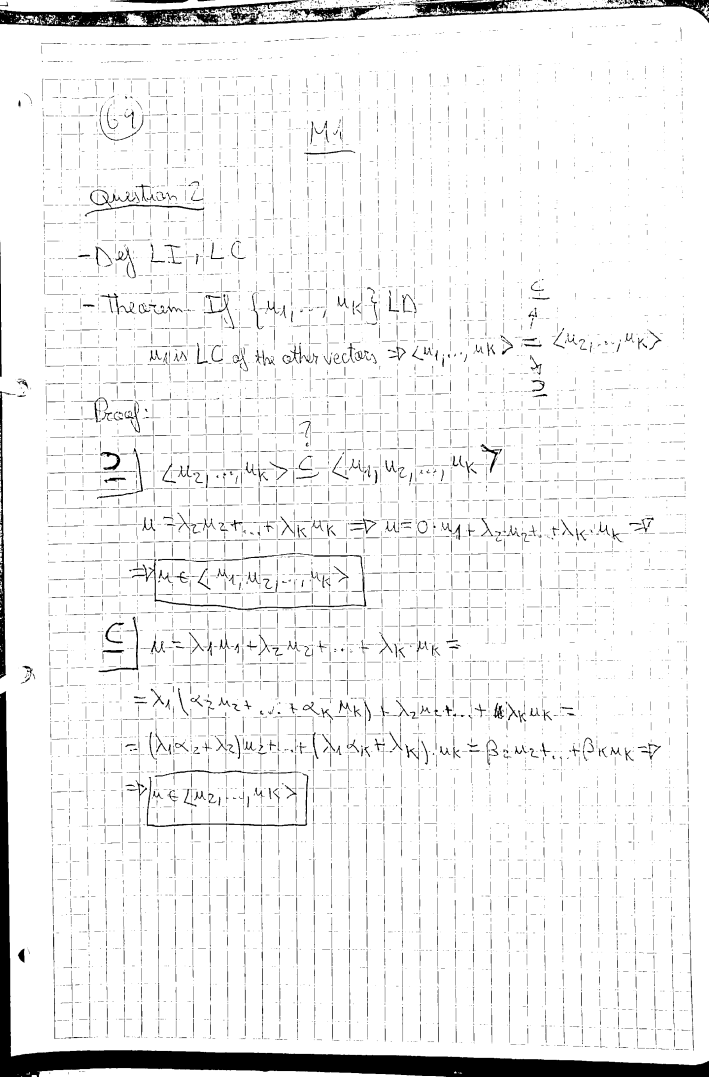 69
M1
Question 2
- Def LI, LC
- Theorem If {u1, ..., uK} LD
u1 is LC of the other vectors ⇒ <u1, ..., uK> = <u2, ..., uK>
⊆
⊇
Proof:
?
⊇] <u2, ..., uK> ⊆ <u1, u2, ..., uK>
u = λ2u2 + ... + λKuK ⇒ u = 0·u1 + λ2·u2 + ... + λK·uK ⇒
⇒ u ∈ <u1, u2, ..., uK>
⊆] u = λ1·u1 + λ2u2 + ... + λK·uK =
= λ1(α2u2 + ... + αKuK) + λ2u2 + ... + λKuK =
= (λ1α2 + λ2)u2 + ... + (λ1αK + λK)·uK = β2u2 + ... + βKuK ⇒
⇒ u ∈ <u2, ..., uK>